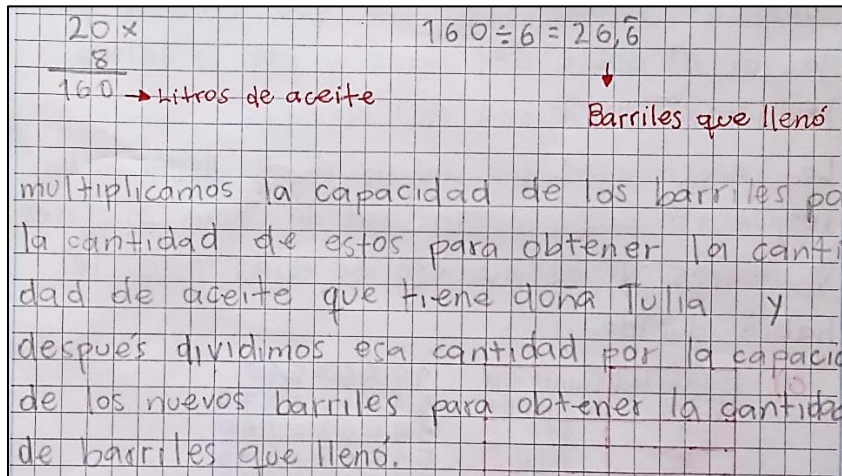 20 x 160÷6=26,6̅
8
160 → Litros de aceite
Barriles que llenó
multiplicamos la capacidad de los barriles po
la cantidad de estos para obtener la canti
dad de aceite que tiene doña Tulia y
después dividimos esa cantidad por la capacid
de los nuevos barriles para obtener la cantidad
de barriles que llenó.